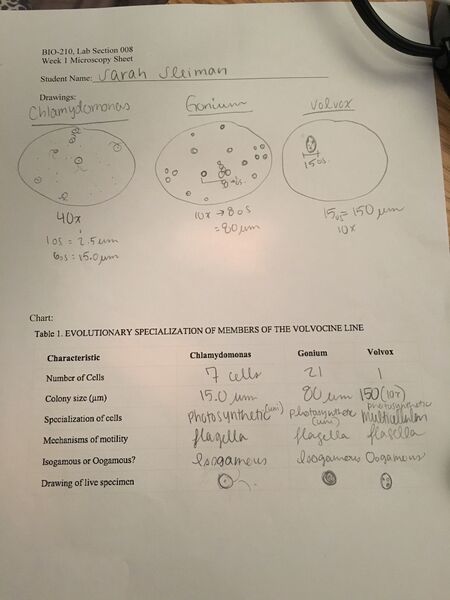 BIO-210, Lab Section 008
Week 1 Microscopy Sheet
Student Name: Sarah Sleiman
Drawings:
Chlamydomonas Gonium Volvox
8 os
15os.
40x 10x → 8 os 15os = 150 µm
= 80 µm 10x
1 os = 2.5 µm
6os = 15.0 µm
Chart:
Table 1. EVOLUTIONARY SPECIALIZATION OF MEMBERS OF THE VOLVOCINE LINE
Characteristic Chlamydomonas Gonium Volvox
Number of Cells 7 cells 21 1
Colony size (µm) 15.0 µm 80 µm 150 (10x)
Specialization of cells photosynthetic (uni) photosynthetic (uni) photosynthetic Multicellular
Mechanisms of motility flagella flagella flagella
Isogamous or Oogamous? Isogamous Isogamous Oogamous
Drawing of live specimen